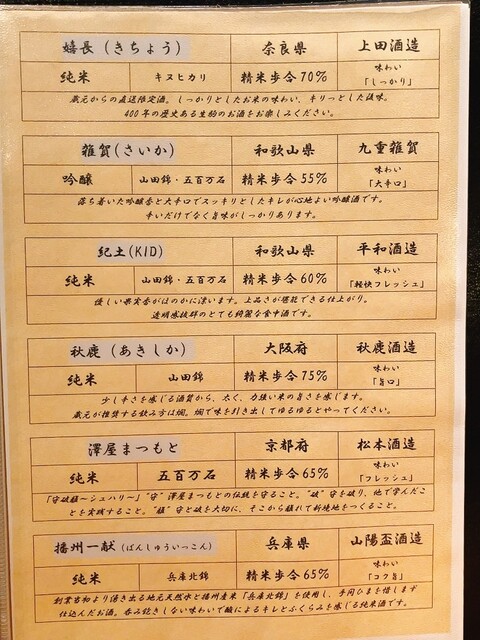 嬉長（きちょう） 奈良県 上田酒造
純米 キヌヒカリ 精米歩合70% 味わい「しっかり」
蔵元からの直送限定酒。しっかりとしたお米の味わい、キリっとした後味。
400年の歴史ある生駒のお酒をお楽しみください。
雑賀(さいか) 和歌山県 九重雑賀
吟醸 山田錦・五百万石 精米歩合55% 味わい「大辛口」
落ち着いた吟醸香と大辛口でスッキリとしたキレが心地よい吟醸酒です。
辛いだけでなく旨味がしっかりあります。
紀土(KID) 和歌山県 平和酒造
純米 山田錦・五百万石 精米歩合60% 味わい「軽快フレッシュ」
優しい果実香がほのかに漂います。上品さが堪能できる仕上がり。
透明感抜群のとても綺麗な食中酒です。
秋鹿（あきしか） 大阪府 秋鹿酒造
純米 山田錦 精米歩合75% 味わい「旨口」
少し辛さを感じる酒質から、太く、力強い米の旨さを感じます。
蔵元が推奨する飲み方は燗。燗で味を引き出してゆるゆるとやってください。
澤屋まつもと 京都府 松本酒造
純米 五百万石 精米歩合65% 味わい「フレッシュ」
「守破離～シュハリ～」"守"澤屋まつもとの伝統を守ること。"破"守を破り、他で学んだこ
とを実践すること。"離"守と破を大切に、そこから離れて新境地をつくること。
播州一献（ばんしゅういっこん） 兵庫県 山陽盃酒造
純米 兵庫北錦 精米歩合65% 味わい「コク旨」
創業当初より湧き出る地元天然水と播州産米「兵庫北錦」を使用し、手間ひまを惜しまず
仕込んだお酒。呑み飽きしない味わいで酸によるキレとふくらみを感じる純米酒です。